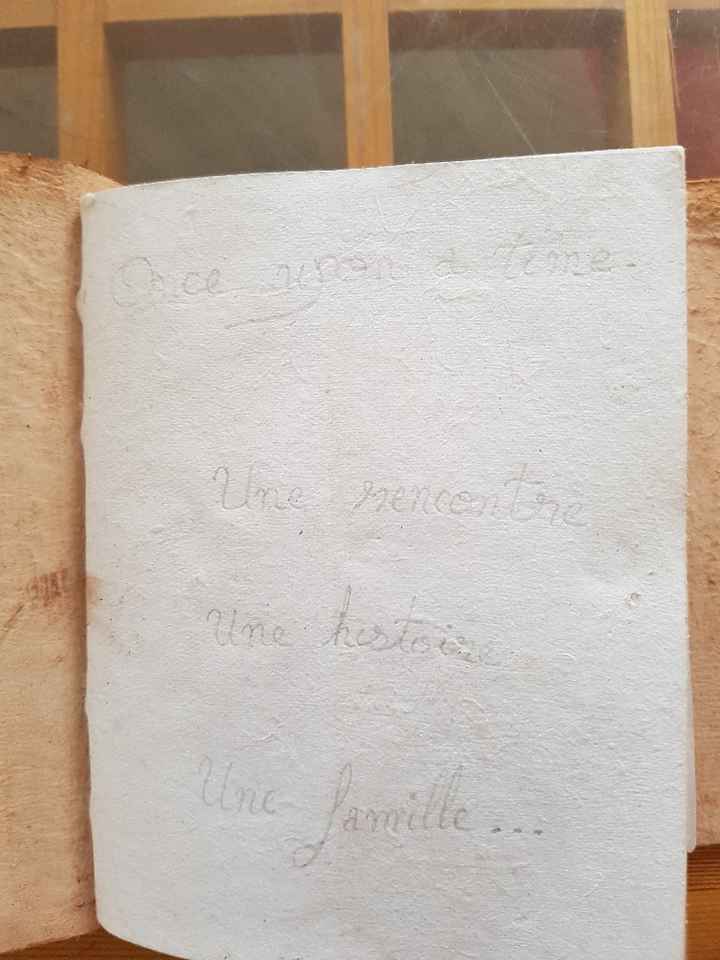 Once upon a time.
Une rencontre
Une histoire
Une famille...